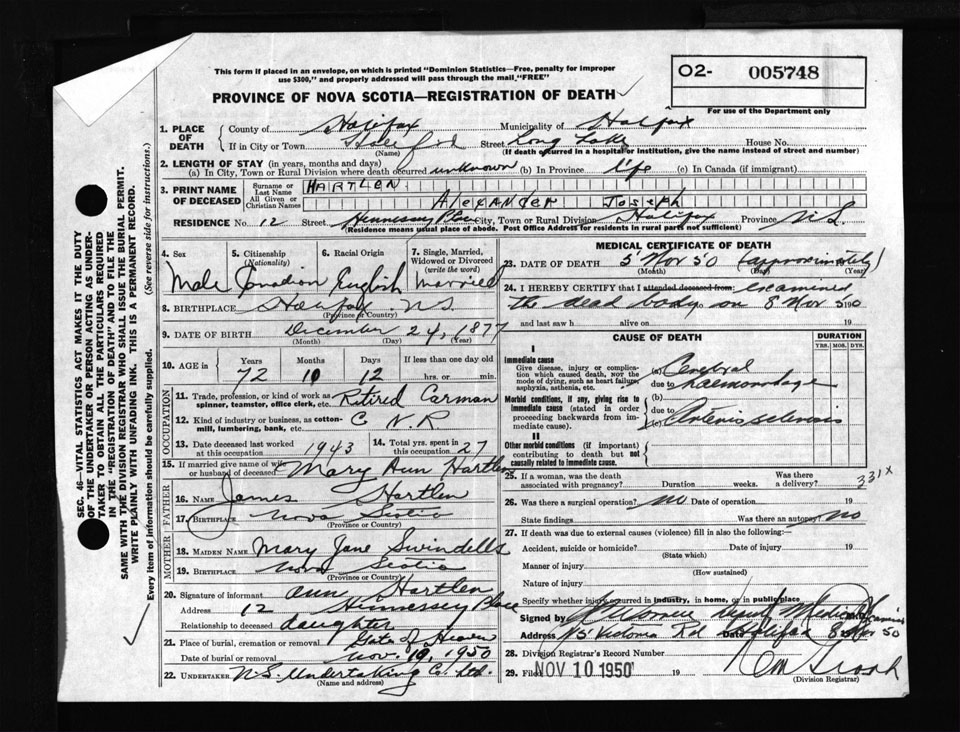 This form if placed in an envelope, on which is printed "Dominion Statistics—Free, penalty for improper
use $300," and properly addressed will pass through the mail, "FREE"
PROVINCE OF NOVA SCOTIA—REGISTRATION OF DEATH
O2- 005748
For use of the Department only
1. PLACE OF DEATH { County of Halifax Municipality of Halifax
If in City or Town Street Long Lake House No.
(Name) (If death occurred in a hospital or institution, give the name instead of street and number)
2. LENGTH OF STAY (in years, months and days)
(a) In City, Town or Rural Division where death occurred unknown (b) In Province life (c) In Canada (if immigrant)
3. PRINT NAME OF DECEASED { Surname or Last Name HARTLEN
All Given or Christian Names ALEXANDER JOSEPH
RESIDENCE No. 12 Street Hennessy Place City, Town or Rural Division Halifax Province N.S.
(Residence means usual place of abode. Post Office Address for residents in rural parts not sufficient)
4. Sex 5. Citizenship (Nationality) 6. Racial Origin 7. Single, Married, Widowed or Divorced (write the word)
Male Canadian English Married
8. BIRTHPLACE Halifax N.S.
(Province or Country)
9. DATE OF BIRTH December 24, 1877
(Month) (Day) (Year)
10. AGE in { Years Months Days If less than one day old
72 10 12 hrs. or min.
OCCUPATION
11. Trade, profession, or kind of work as spinner, teamster, office clerk, etc. Retired Carman
12. Kind of industry or business, as cotton-mill, lumbering, bank, etc. C.N.R.
13. Date deceased last worked at this occupation 1943 14. Total yrs. spent in this occupation 27
15. If married give name of wife or husband of deceased Mary Ann Hartlen
FATHER
16. NAME James Hartlen
17. BIRTHPLACE Nova Scotia
(Province or Country)
MOTHER
18. MAIDEN NAME Mary Jane Swindells
19. BIRTHPLACE Nova Scotia
(Province or Country)
20. Signature of informant Ann Hartlen
Address 12 Hennessey Place
Relationship to deceased daughter
21. Place of burial, cremation or removal Gate of Heaven
Date of burial or removal Nov. 1950
22. UNDERTAKER N.S. Undertaking Co. Ltd.
(Name and address)
MEDICAL CERTIFICATE OF DEATH
23. DATE OF DEATH 5 Nov 50 (approximately)
(Month) (Day) (Year)
24. I HEREBY CERTIFY that I attended deceased from: examined
the dead body on 8 Nov 50
and last saw h alive on 19
CAUSE OF DEATH DURATION
YRS. MOS. DYS.
I
Immediate cause
Give disease, injury or complication which caused death, not the mode of dying, such as heart failure, asphyxia, asthenia, etc.
(a) Cerebral
due to haemorrhage
Morbid conditions, if any, giving rise to immediate cause (stated in order proceeding backwards from immediate cause).
(b)
due to
(c) Arterio sclerosis
II
Other morbid conditions (if important) contributing to death but not causally related to immediate cause.
25. If a woman, was the death associated with pregnancy? Duration weeks. Was there a delivery?
331X
26. Was there a surgical operation? no Date of operation 19
State findings Was there an autopsy? no
27. If death was due to external causes (violence) fill in also the following:—
Accident, suicide or homicide? Date of injury 19
(State which)
Manner of injury
(How sustained)
Nature of injury
Specify whether injury occurred in industry, in home, or in public place
Signed by Deputy Medical Examiner
Address Victoria Rd Date Halifax 8 Nov 50
28. Division Registrar's Record Number
29. Filed NOV 10 1950 19
(Division Registrar)
SEC. 46—VITAL STATISTICS ACT MAKES IT THE DUTY
OF THE UNDERTAKER OR PERSON ACTING AS UNDER-
TAKER TO OBTAIN ALL THE PARTICULARS REQUIRED
IN THE "REGISTRATION OF DEATH" AND TO FILE THE
SAME WITH THE DIVISION REGISTRAR WHO SHALL ISSUE THE BURIAL PERMIT.
WRITE PLAINLY WITH UNFADING INK. THIS IS A PERMANENT RECORD.
Every item of information should be carefully supplied. (See reverse side for instructions.)